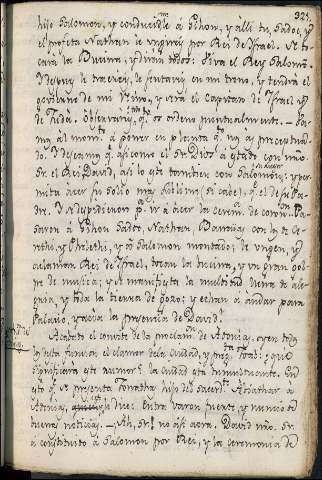 324
hijo Salomon, y conducidle a Gihon, y alli tu, Sadoc, y
el profeta Nathan le ungireis por Rei de Israel. Se to-
cará la bucina, y diran todos: Viva el Rey Salomon.
Despues le traereis, se sentara en mi trono, y tendrá el
govierno de mi Reino, y será el Capitan de Israel y
de Juda. Observareis, q.e os ordeno puntualmente. — Va-
mos al mom.to a poner en planta q.to nos ais preceptua-
do. Deseamos q.e asi como el Sr Dios a estado con mio
Sr el Rei David, asi lo esta tambien con Salomon; y per-
mita acer su solio mas sublime (si cabe), q.e el de su Pa-
dre. Y despidieron p.r ir a acer la cerem. de coron.on Pa-
saron á Gihon Sadoc, Nathan, Banaias con los de Ce-
rethi, y Phelethi, y a Salomon montado; le ungen, y
aclaman Rei de Israel, tocan la bucina, y un gran gol-
pe de musica; y se manifiesta la multitud llena de ale-
gria, y toda la tierra de gozo; y echan a andar para
Palacio, y acia la presencia de David.
Acabado el convite de la proclam.on de Adonia, oyen todos
los de la funcion el clamor de la ciudad, y preg.ta Joab: ¿que
significaria este rumor? la ciudad esta tumultuante. En
esto q.e se presenta Jonathas hijo del sacerd.te Abiathar á
Adonia, y le dice: Entra varon fuerte, y nuncio de
buenas noticias. — ¡Ah, Sr! no asi aora. David mio Sr
a constituido a Salomon por Rei, y la ceremonia de